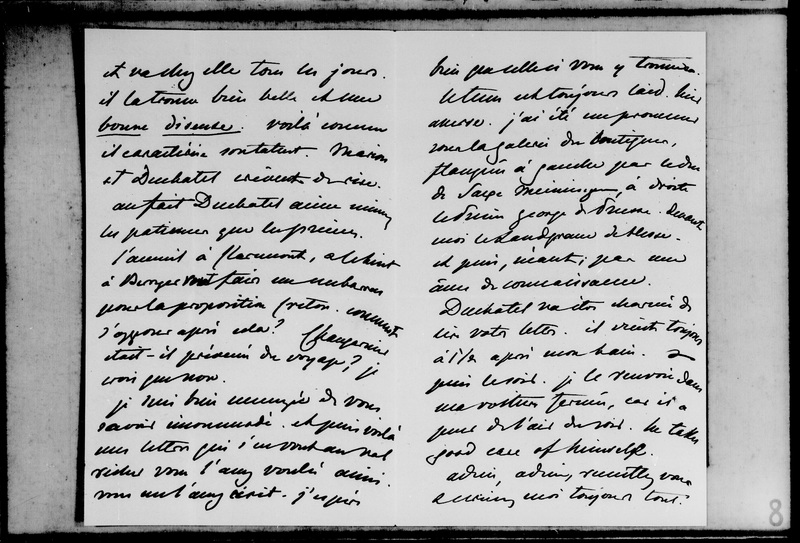 et va chez elle tous les jours.
il la trouve bien belle et une
bonne diseuse. voilà comme
il caractérise son talent. Marion
et Duchatel crèvent de rire.
au fait Duchatel aime mieux
les patiences que les princes.
à Claremont, a
à Berryer font faire un embarras
pour la proposition Creton. comment
s'opposer après cela? Changarnier
était-il prévenu du voyage? je
crois que non.
je suis bien ennuyée de vous
savoir incommodé. et puis voilà
mes lettres qui s'en vont au Val
Richer vous l'avez voulu ainsi.
vous me l'avez écrit. j'espère
bien que celle ci vous y trouvera.
le tems est toujours laid. hier
averse. j'ai été me promener
sous la galerie des boutiques,
flanquée à gauche par le duc
de Saxe Meiningen, à droite
le Prince George de Prusse. devant
moi le Landgrave de Hesse.
et puis, néant; pas une
âme de connaissance.
Duchatel va être charmé de
lire votre lettre. il vient toujours
à après mon bain. &
puis le soir. je le renvoie dans
ma voiture fermée, car il a
peur de l'air du soir. he takes
good care of himself.
adieu, adieu,
moi toujours tout.
8